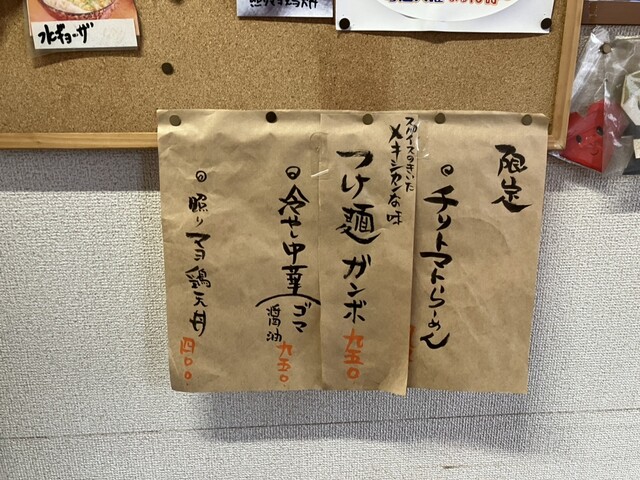 水ギョーザ
限定
チリトマトらーめん
スパイスのきいた
メキシカンな味
つけ麺 ガンボ 九五〇
冷やし中華(ゴマ
醤油
九五〇
照りマヨ鶏天丼 四〇〇